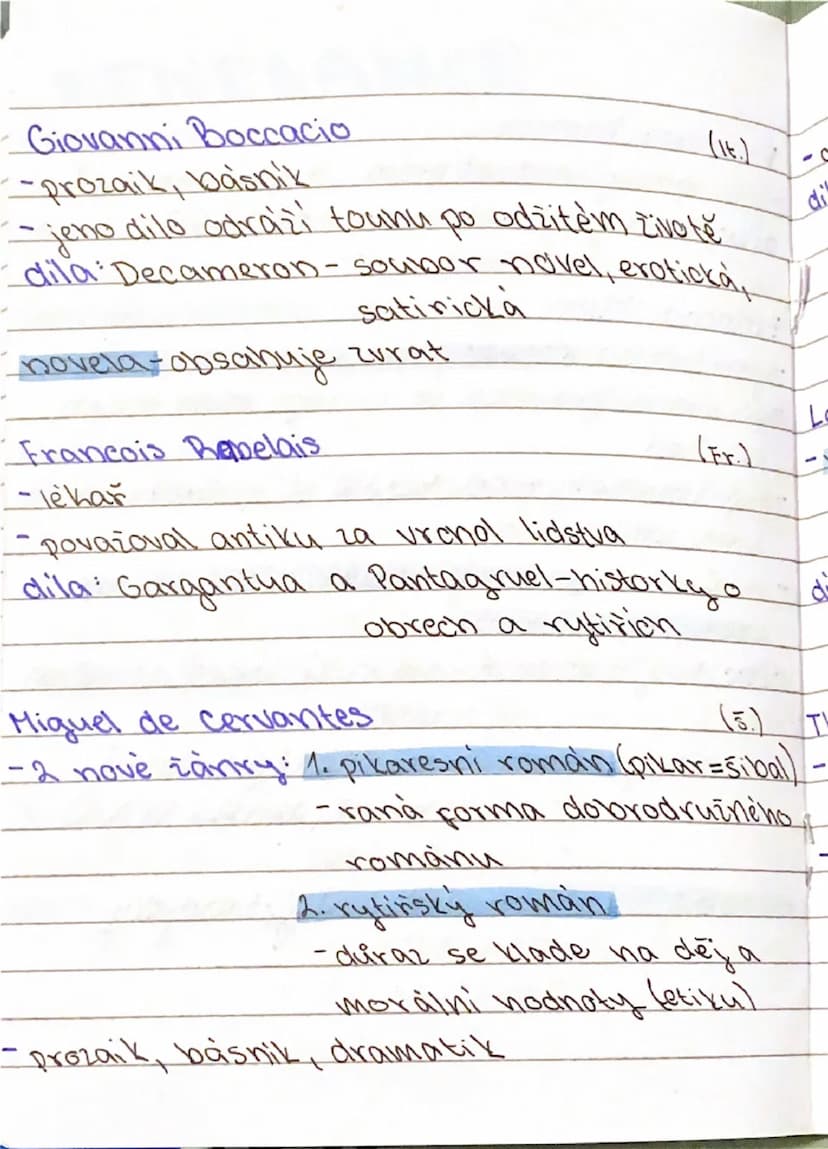 Giovanni Boccacio (It.)
- prozaik, básník
- jeho dílo odráží touhu po odžitém životě
díla: Decameron - soubor novel, erotická,
satirická
novela - obsahuje zvrat
Francois Rabelais (Fr.)
- lékař
- považoval antiku za vrchol lidstva
díla: Gargantua a Pantagruel - historky o
obrech a rytířích
Miguel de Cervantes (š.)
- 2 nové žánry: 1. pikaresní román (pikar = šibal)
- raná forma dobrodružného
románu
2. rytířský román
- důraz se klade na děj a
morální hodnoty (etiku)
- prozaik, básník, dramatik